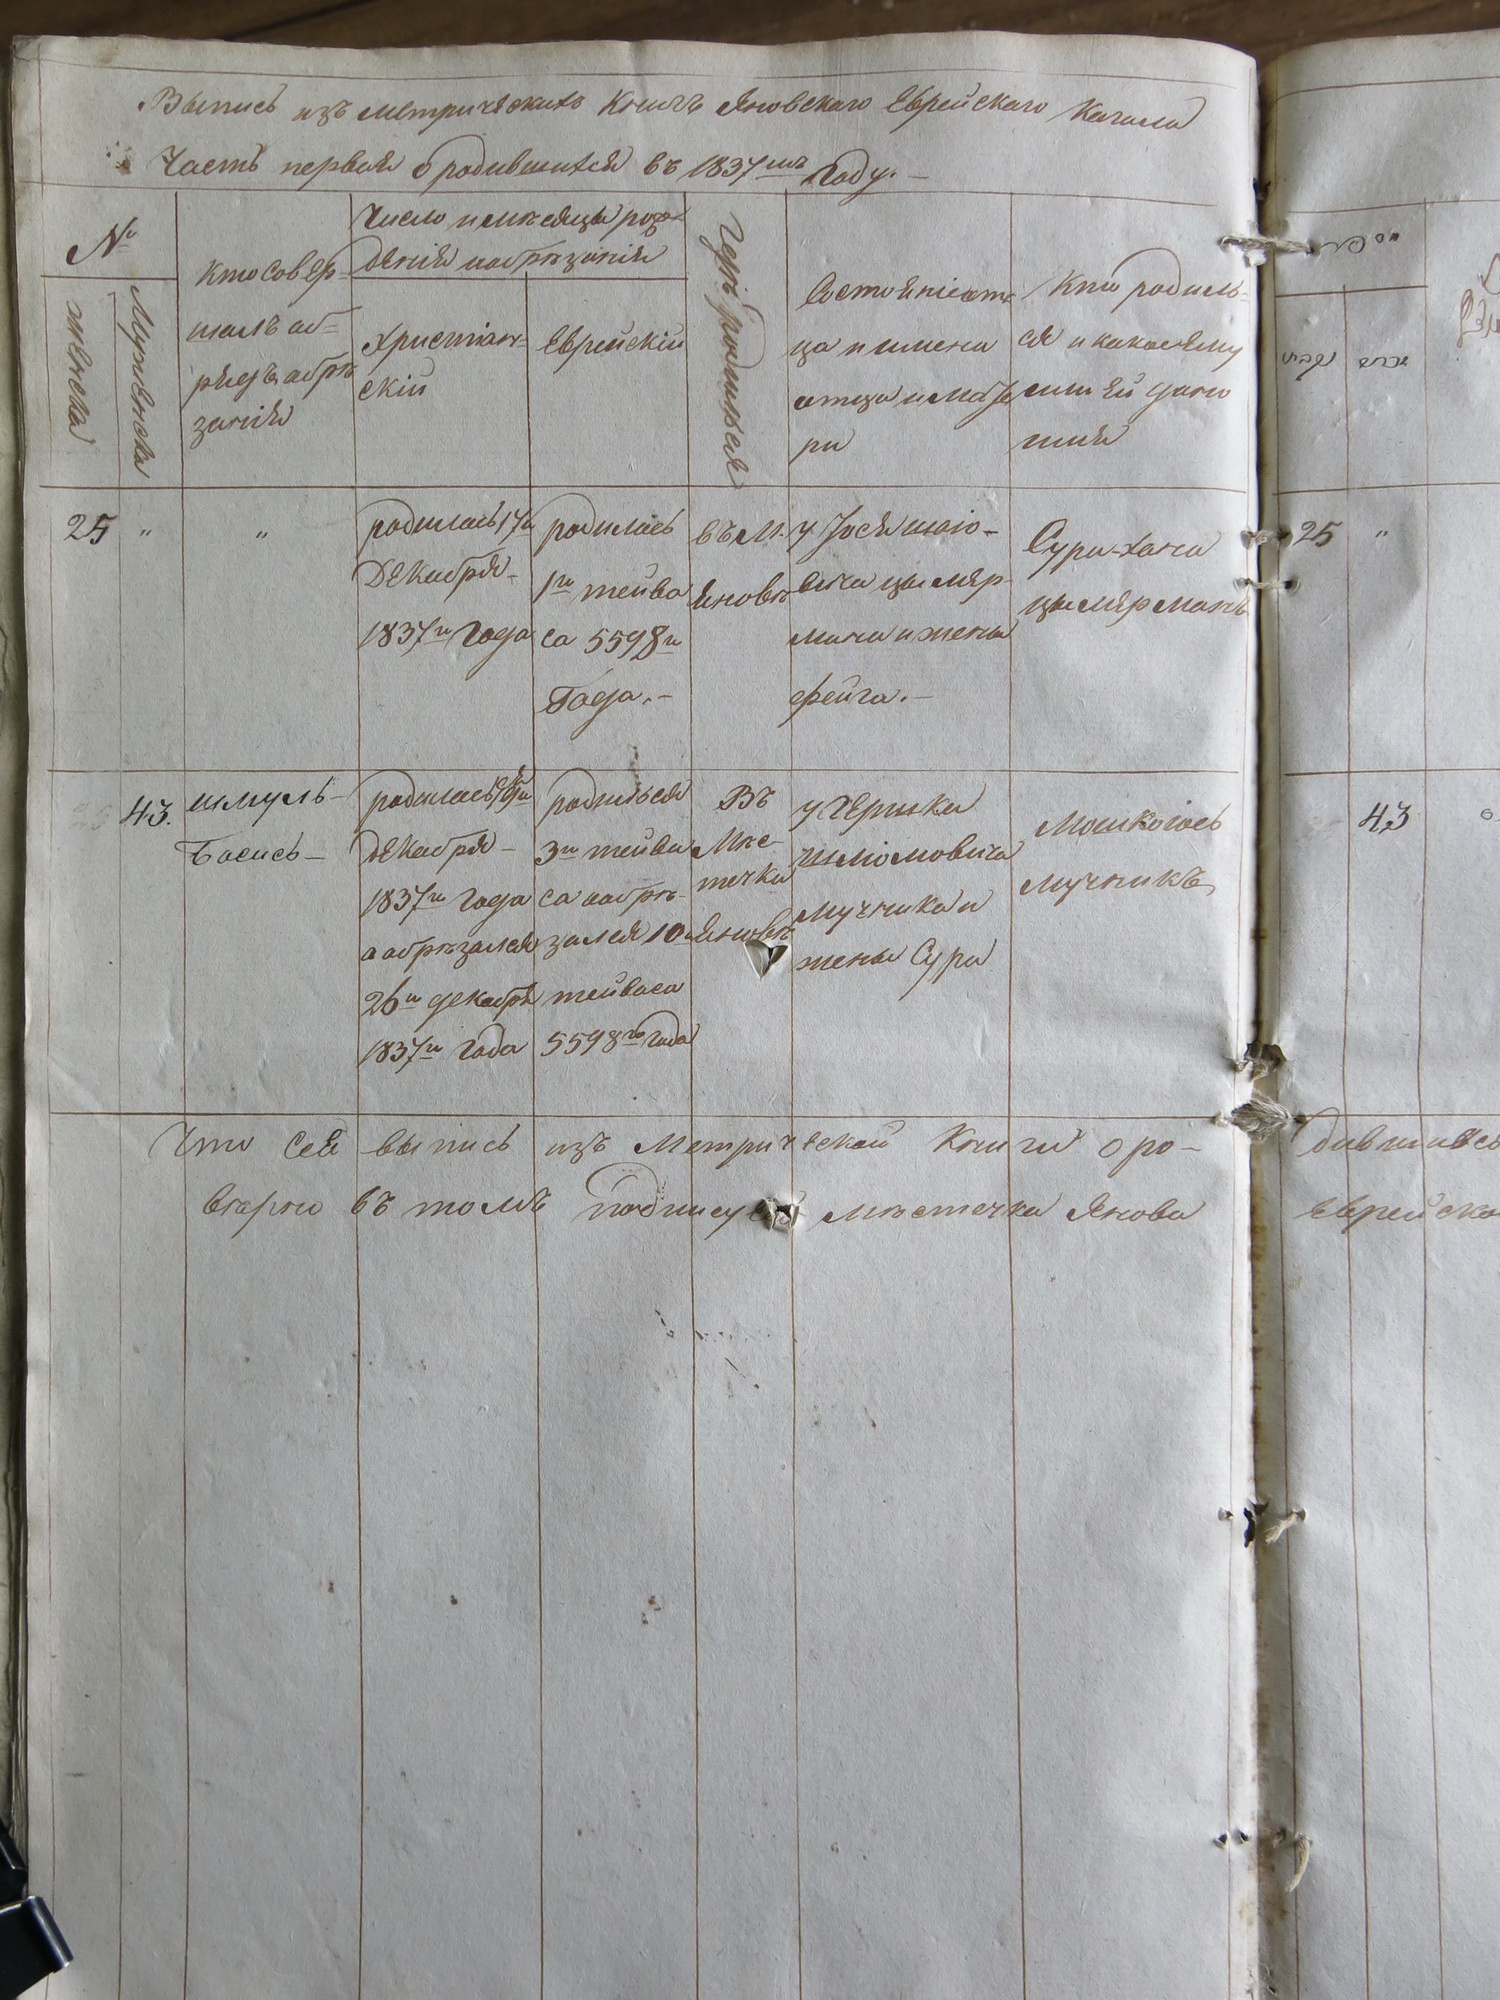 Выпись изъ метрическихъ Книгъ Яновскаго Еврейскаго Кагала
Часть первая о родившихся въ 1837мъ Году.—
№
женска
Мужеска
Кто совер-
шалъ об-
рядъ обрѣ
занія
Число и мѣсяцъ рож-
денія и обрѣзанія
Христіан-
скій
Еврейскій
Гдѣ родился
Состояніе от
ца и имена
отца и мате
ри
Кто родил-
ся и какое ему
или ей дано
имя
25
"
"
родилась 17го
Декабря-
1837го Года
родилась
1го тейва
са 5598го
Года.—
въ М.
Яновѣ
у Іося
вича цымер-
мана и жены
фейга.—
Сура-хана
цымерманъ
43.
шмуль-
Басись—
Декабря—
1837го Года
а обрѣзался
26го декабря
1837го Года
родился
3го тейва
са а обрѣ-
зался 10го
тейваса
5598го Года
Въ
Мѣс-
течкѣ
Яновѣ
у Гершка
шлёмовича
Мучника и
жены Сури
Мучникъ
Что Сея выпись изъ Метрической Книги о ро-
вѣрно въ томъ подписуе мѣстечка Янова
25
"
43
дившихся
Еврейска